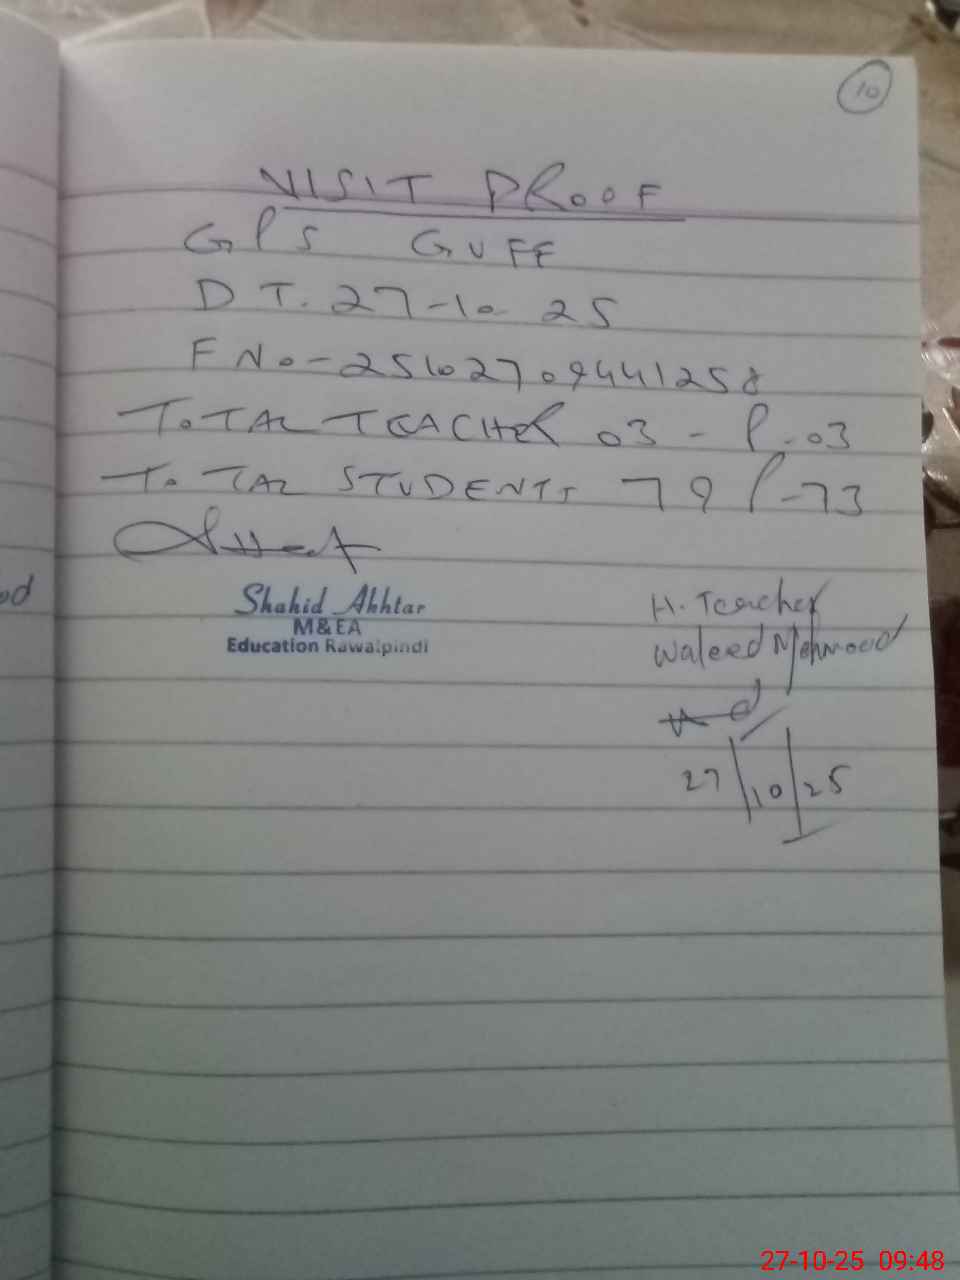 10
VISIT PROOF
GPS GUFF
DT. 27-10-25
F No-25102709441258
TOTAL TEACHER 03 - P-03
TOTAL STUDENTS 79 P-73
od
Shahid Akhtar
M&EA
Education Rawalpindi
H. Teacher
Waleed Mehmood
27/10/25
27-10-25 09:48